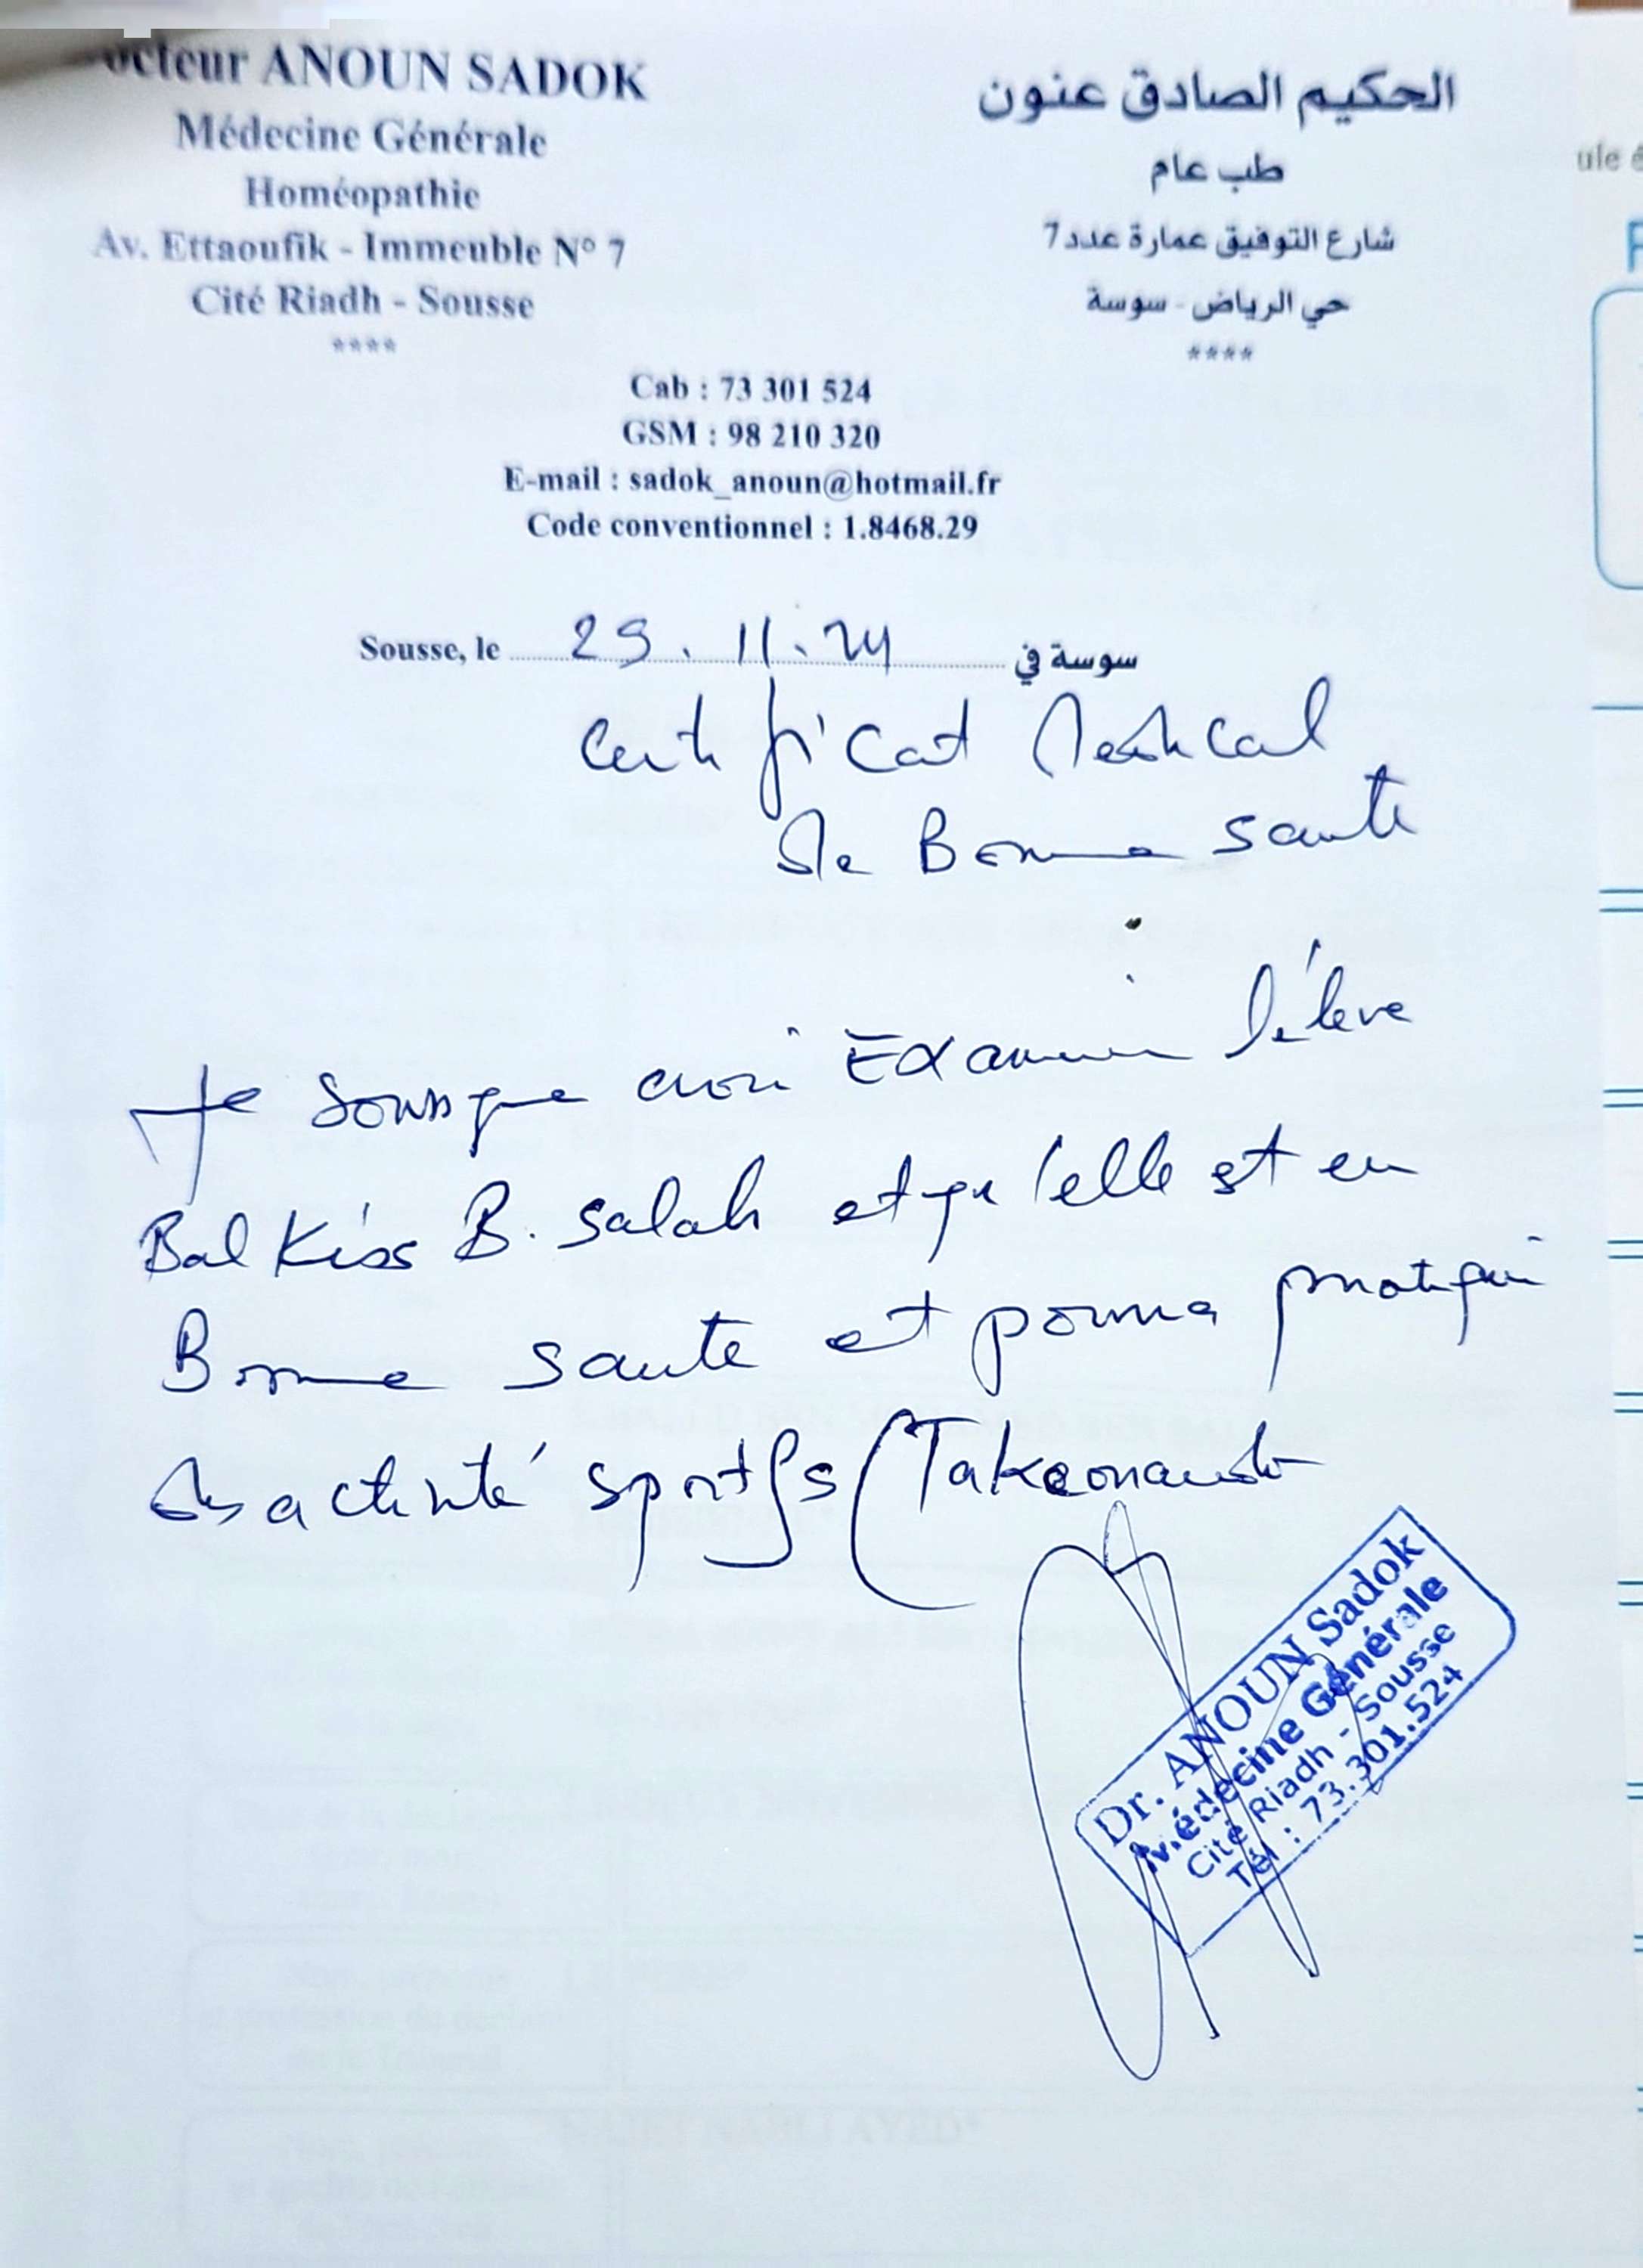 octeur ANOUN SADOK
Médecine Générale
Homéopathie
Av. Ettaoufik - Immeuble N° 7
Cité Riadh - Sousse
****
الحكيم الصادق عنون
طب عام
شارع التوفيق عمارة عدد 7
حي الرياض - سوسة
****
Cab : 73 301 524
GSM : 98 210 320
E-mail : sadok_anoun@hotmail.fr
Code conventionnel : 1.8468.29
Sousse, le 29.11.24 سوسة في
Certificat Medical
de Bonne sante
Je soussigne avoir Examiner l'éleve
Balkiss B. Salah et qu'elle est en
Bonne sante et pourra pratiquer
des activité sportifs (Takeonaudo
Dr. ANOUN Sadok
Médecine Générale
Cité Riadh - Sousse
Tél : 73.301.524
ule é